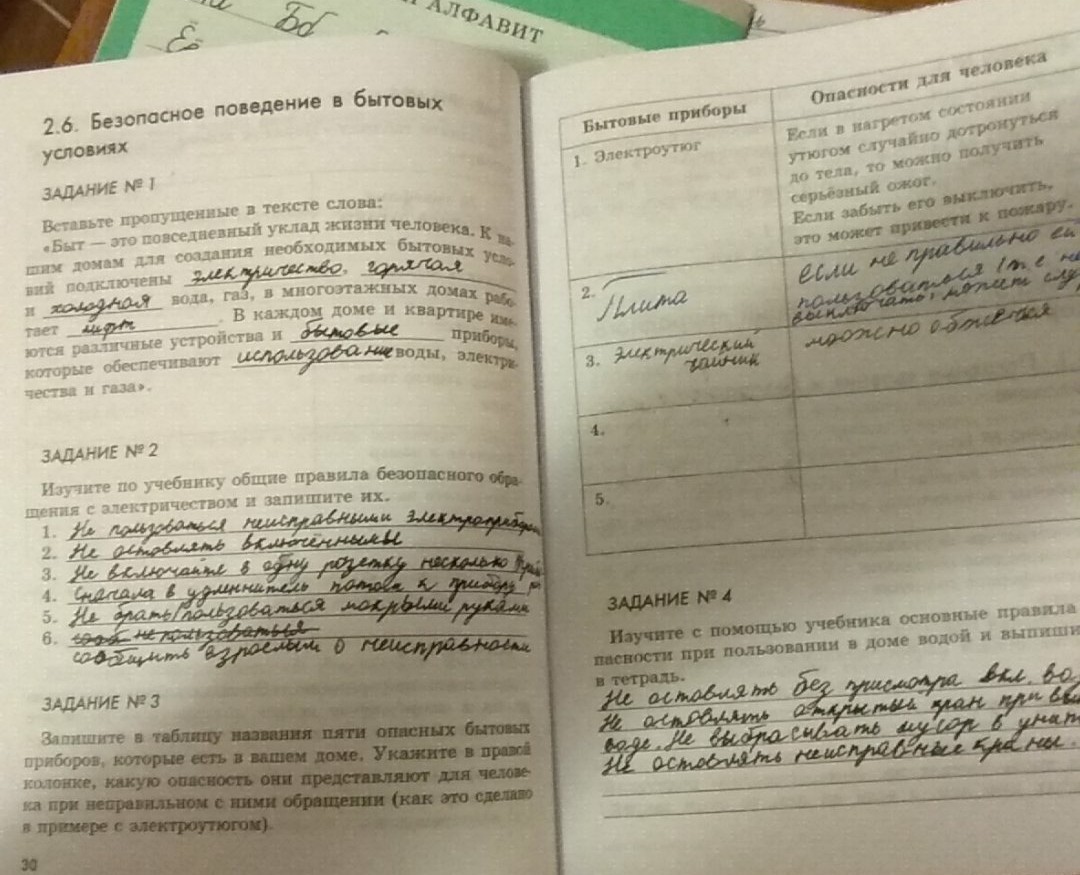 АЛФАВИТ
Бб
Ёё
2.6. Безопасное поведение в бытовых
условиях
ЗАДАНИЕ № 1
Вставьте пропущенные в тексте слова:
«Быт — это повседневный уклад жизни человека. К на-
шим домам для создания необходимых бытовых усло-
вий подключены электричество, горячая
и холодная вода, газ, в многоэтажных домах рабо-
тает лифт. В каждом доме и квартире име-
ются различные устройства и бытовые приборы,
которые обеспечивают использование воды, электри-
чества и газа».
ЗАДАНИЕ № 2
Изучите по учебнику общие правила безопасного обра-
щения с электричеством и запишите их.
1. Не пользоваться неисправными электроприборами
2. Не оставлять включёнными
3. Не включайте в одну розетку несколько
4. Сначала в удлиннитель потом к прибору
5. Не брать/пользоваться мокрыми руками
6. не пользоваться
сообщить взрослым о неисправности
ЗАДАНИЕ № 3
Запишите в таблицу названия пяти опасных бытовых
приборов, которые есть в вашем доме. Укажите в правой
колонке, какую опасность они представляют для челове-
ка при неправильном с ними обращении (как это сделано
в примере с электроутюгом).
30
Бытовые приборы
Опасности для человека
1. Электроутюг
Если в нагретом состоянии
утюгом случайно дотронуться
до тела, то можно получить
серьёзный ожог.
Если забыть его выключить,
это может привести к пожару.
2. Плита
если не правильно ей
пользоваться (т.е не
выключать, может слу
3. Электрический
чайник
можно обжечся
4.
5.
ЗАДАНИЕ № 4
Изучите с помощью учебника основные правила
пасности при пользовании в доме водой и выпиши
в тетрадь.
Не оставлять без присмотра вкл. во
Не оставлять открытый кран при вы
воде. Не выбрасывать мусор в унит
Не оставлять неисправные краны.